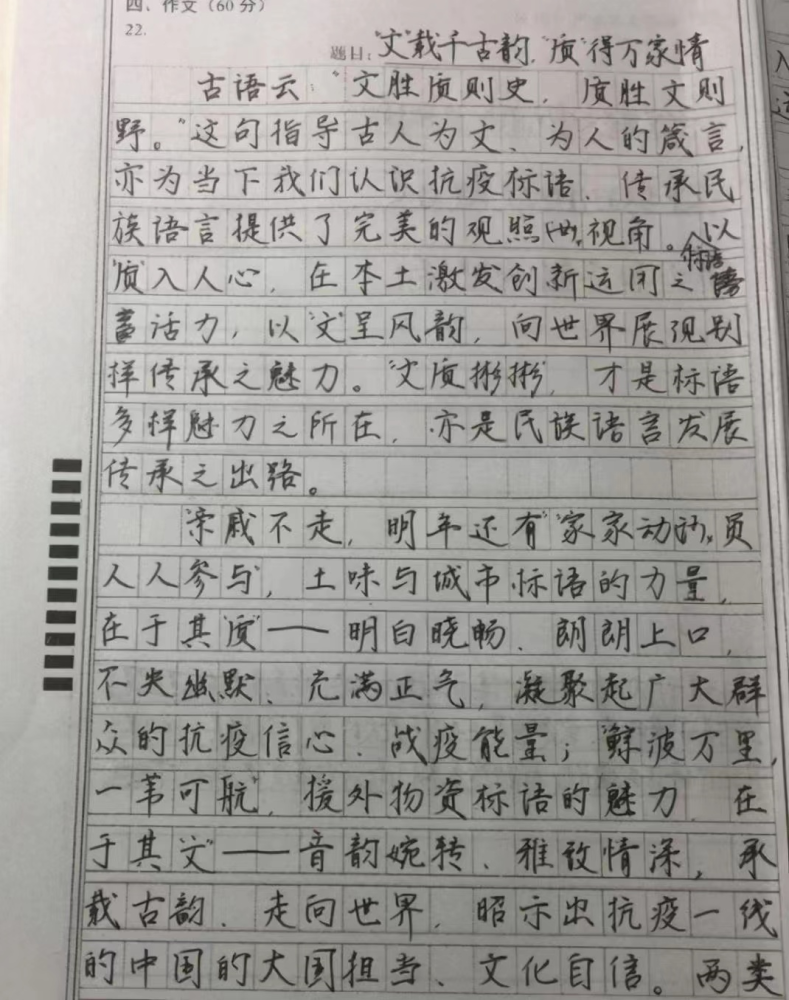 四、作文（60分）
22.
题目："文"载千古韵，"质"得万家情
古语云："文胜质则史，质胜文则
野。"这句指导古人为文、为人的箴言，
亦为当下我们认识抗疫标语、传承民
族语言提供了完美的观照视角。以
"质"入人心，在本土激发创新运用之标语
活力，以"文"呈风韵，向世界展现别
样传承之魅力。"文质彬彬"，才是标语
多样魅力之所在，亦是民族语言发展
传承之出路。
"亲戚不走，明年还有""家家动员，
人人参与"，土味与城市标语的力量，
在于其"质"——明白晓畅、朗朗上口，
不失幽默、充满正气，凝聚起广大群
众的抗疫信心、战疫能量；"鲸波万里，
一苇可航"，援外物资标语的魅力，在
于其"文"——音韵婉转、雅致情深，承
载古韵、走向世界，昭示出抗疫一线
的中国的大国担当、文化自信。两类
入